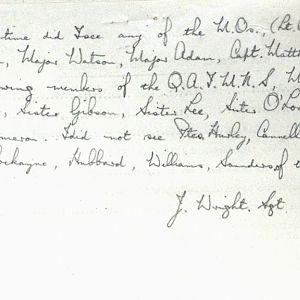 time did I see any of the M.Os., (Lt.
Major Watson, Major Adam, Capt. Matt
members of the Q.A.I.M.N.S,
Sister Gibson, Sister Lee, Sister O'
. I did not see Ptes. Hurley,
, Hubbard, Williams, Sanders of t
J. Wright. Sgt.